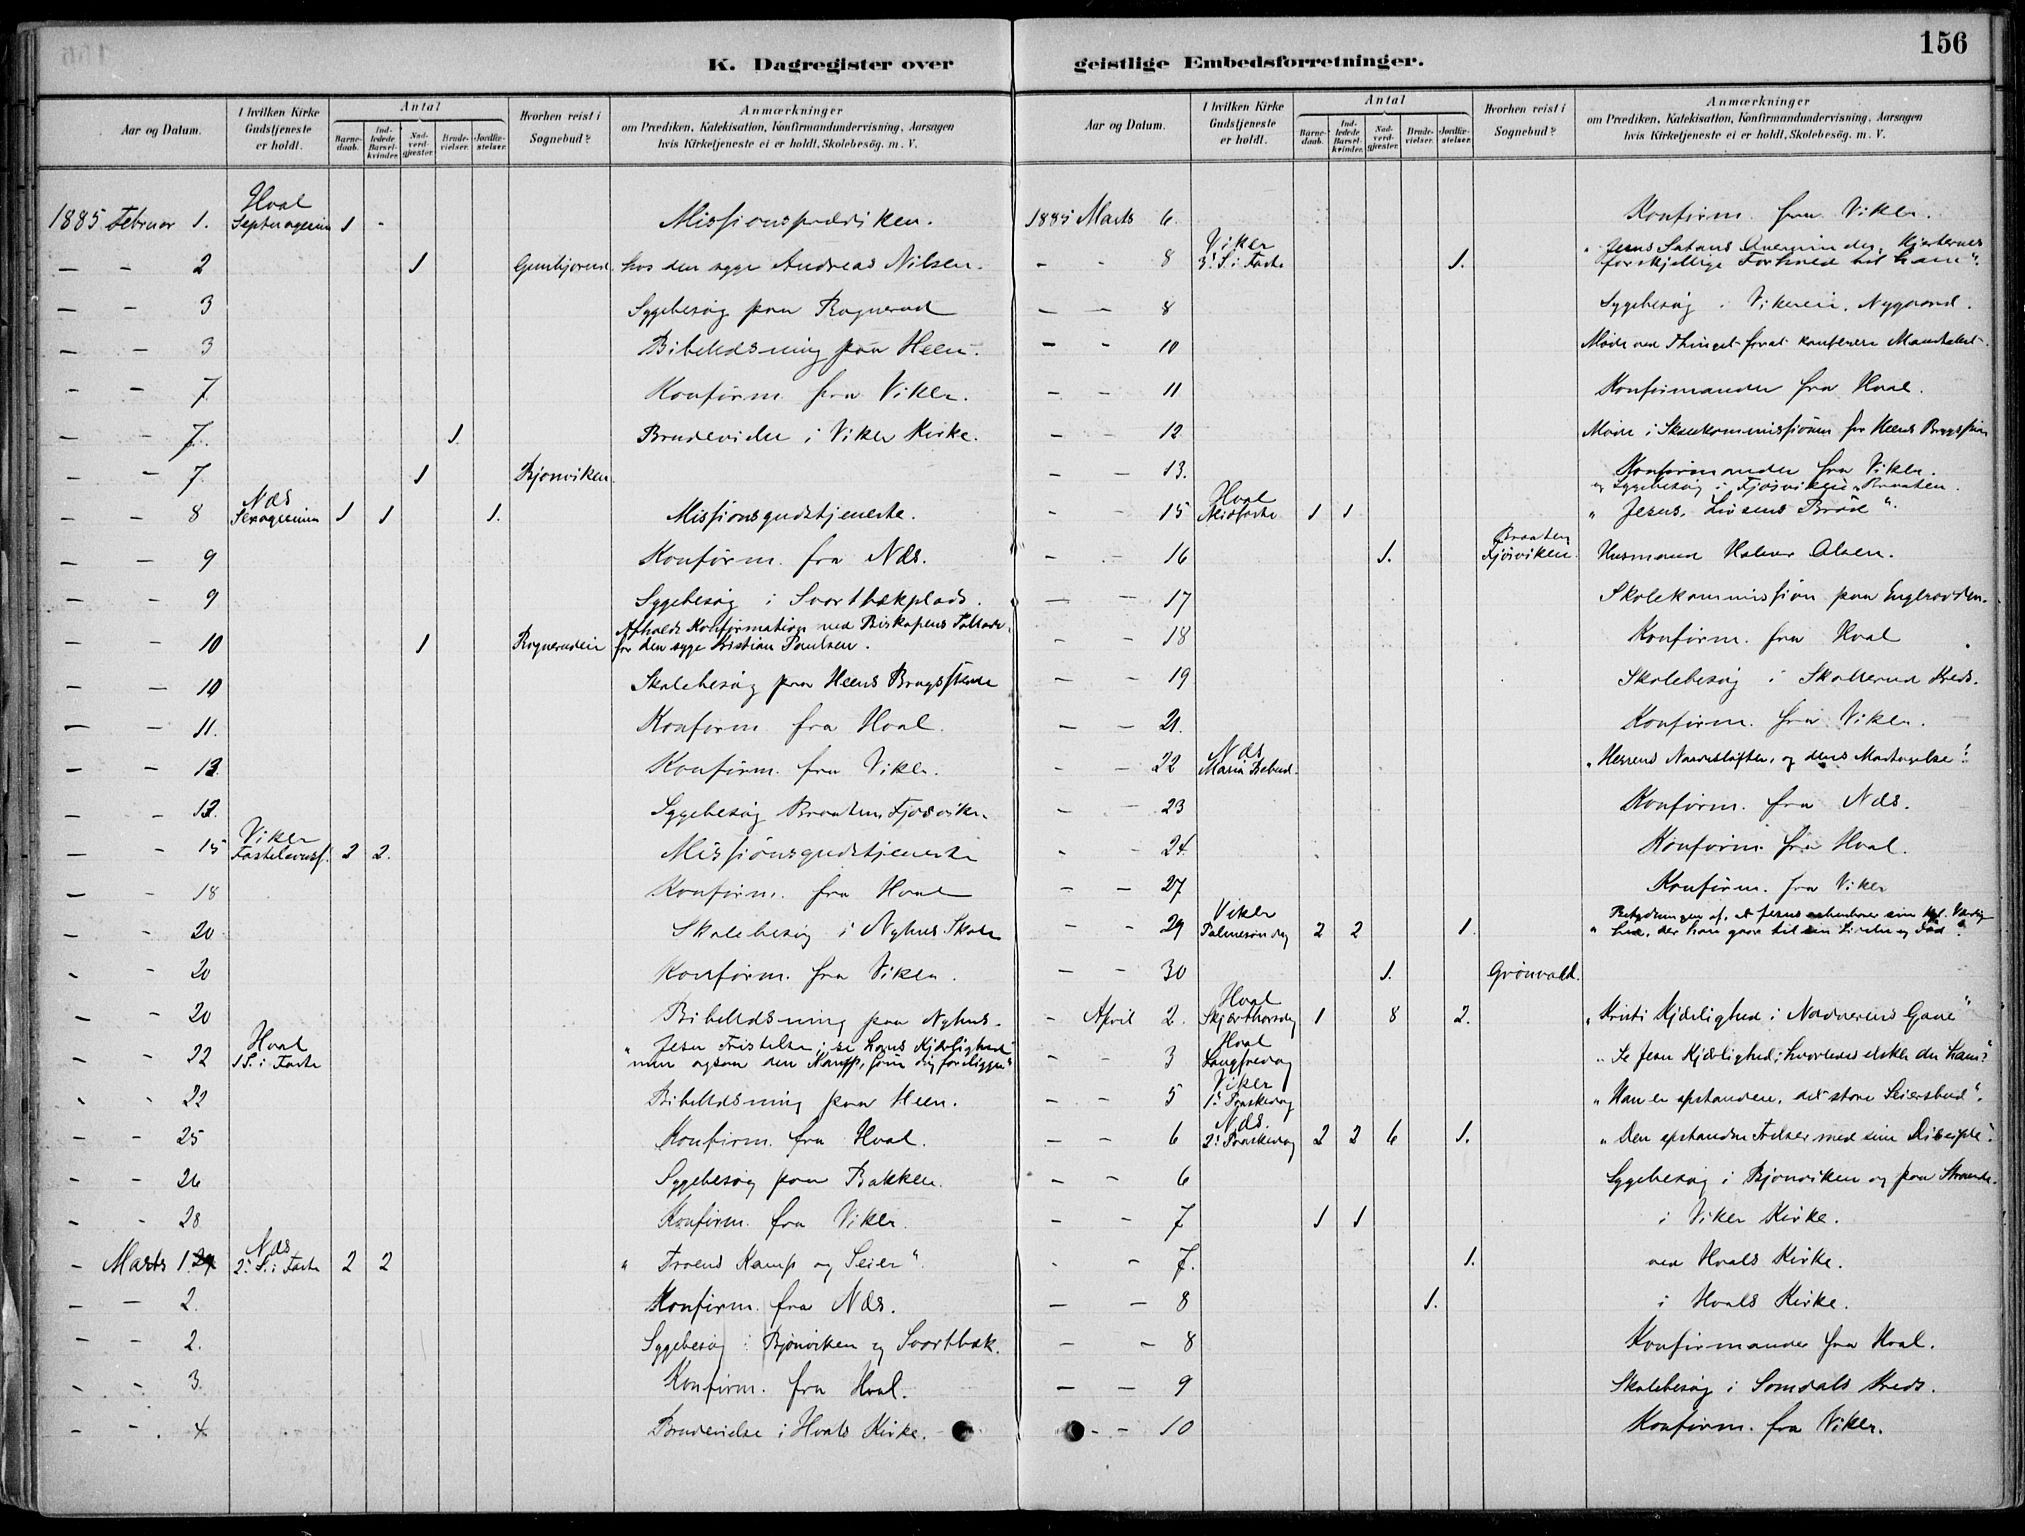 156
K. Dagregister over geistlige Embedsforretninger.
Aar og Datum.
I hvilken Kirke Gudstjeneste er holdt.
Antal
Barnedaab.
Indledede Barselkvinder.
Nadverdgjæster.
Brudevielser.
Jordfæstelser.
Hvorhen reist i Sognebud?
Anmærkninger
om Prædiken, Katekisation, Konfirmandundervisning, Aarsagen
hvis Kirketjeneste ei er holdt, Skolebesög. m. V.
1885 Februar 1. Hval Septuagesim 1 - Missionsprædiken.
— - 2 1 Gunbjörrud. hos den syge Andreas Nilsen.
— — 3 Sygebesög paa Rognerud
— — 3 Bibellæsning paa Heen.
— — 7 Konfirm. fra Viker.
— — 7. 1. Brudevielse i Viker Kirke.
— — 7. 1 Bjonviken.
— — 8 Næs Sexagesima 1 1 1. Missionsgudstjeneste.
— — 9 Konfirm. fra Næs.
— — 9 Sygebesög i Svartbækplads.
— — 10 1 Rognerudeie Afholdt Konfirmation ved Biskopens Tilladelse
for den syge Kristian Paulsen.
— — 10 Skolebesög paa Heens Brugsskole
— — 11. Konfirm. fra Hval.
— — 13. Konfirm. fra Viker.
— — 13. Sygebesög Braaten Fjösviken
— — 15 Viker Fastelavnss. 2 2. Missionsgudstjeneste
— — 18 Konfirm. fra Hval
— — 20 Skolebesög i Nyhus Skole
- — 20 Konfirm. fra Viker.
- — 20 Bibellæsning paa Nyhus.
- — 22 Hval 1 S. i Faste „Jesu Fristelse; se hans Kjærlighed
men ogsaa den Kamp, som dig foreligger“
- - 22 Bibellæsning paa Heen.
- - 25 Konfirm. fra Hval.
- - 26 Sygebesög paa Bakken.
- - 28 Konfirm. fra Viker.
- Marts 1. Næs 2. S. i Faste 2 2 „Troens Kamp og Seier“.
- — 2. Konfirm. fra Næs.
- - 2. Sygebesög i Bjonviken og Svartbæk.
- - 3. Konfirm. fra Hval.
- - 4 Brudevielse i Hvals Kirke.
Aar og Datum.
I hvilken Kirke Gudstjeneste er holdt.
Antal
Barnedaab.
Indledede Barselkvinder.
Nadverdgjæster.
Brudevielser.
Jordfæstelser.
Hvorhen reist i Sognebud?
Anmærkninger
om Prædiken, Katekisation, Konfirmandundervisning, Aarsagen
hvis Kirketjeneste ei er holdt, Skolebesög. m. V.
1885 Marts 6. Konfirm. fra Viker.
- - 8 Viker 3. S. i Faste 1. „Jesus Satans Overvinder, Hjerternes
forskjellige Forhold til ham“.
— — 8 Sygebesög i Vikereie, Nygaard.
— - 10 Möde ved Thinget forat konferere Mandtallet.
— - 11 Konfirmander fra Hval.
— - 12 Möde i Skolekommissionen for Heens Brugsskole
— — 13. Konfirmander fra Viker.
og Sygebesög i Fjösviken, Braaten.
- — 15 Hval Midfaste 1 1 „Jesus, Livsens Bröd“.
— - 16 1. Braaten Fjösviken. Husmand Halvor Olsen.
— — 17 Skolekommission paa
- — 18 Konfirm. fra Hval
— - 19 Skolebesög i Skollerud Kreds.
— — 21. Konfirm. fra Viker.
- — 22 Næs Maria Bebud. „Herrens Naadeslöfter, og deres Modtagelse“.
- — 23 Konfirm. fra Næs.
- — 24. Konfirm. fra Hval.
- — 27 Konfirm. fra Viker
- - 29 Viker Palmesöndag 2 2 1. „Betydningen af, at Jesus
— — 30 1. Grönvold.
- April 2. Hval Skjærthorsdag 1 8 2. „Kristi Kjærlighed i Nadverens Gave“
— - 3 Hval Langfredag „Se Jesu Kjærlighed; hvorledes elsker du ham?“
— - 5 Viker 1. Paaskedag „Han er opstanden, det store Seiersbud“.
- - 6 Næs. 2. Paaskedag 2 2 6 1. „Den opstandne Frelser med sine Disciple“.
— - 6 Sygebesög i Bjonviken og paa Strande.
— - 7 1 1 i Viker Kirke.
- - 7. 1. ved Hvals Kirke.
— — 8 1. i Hvals Kirke.
— - 8 Konfirmander fra Hval.
— — 9 Skolebesög i Somdals Kreds.
- - 10 Konfirm. fra Viker.